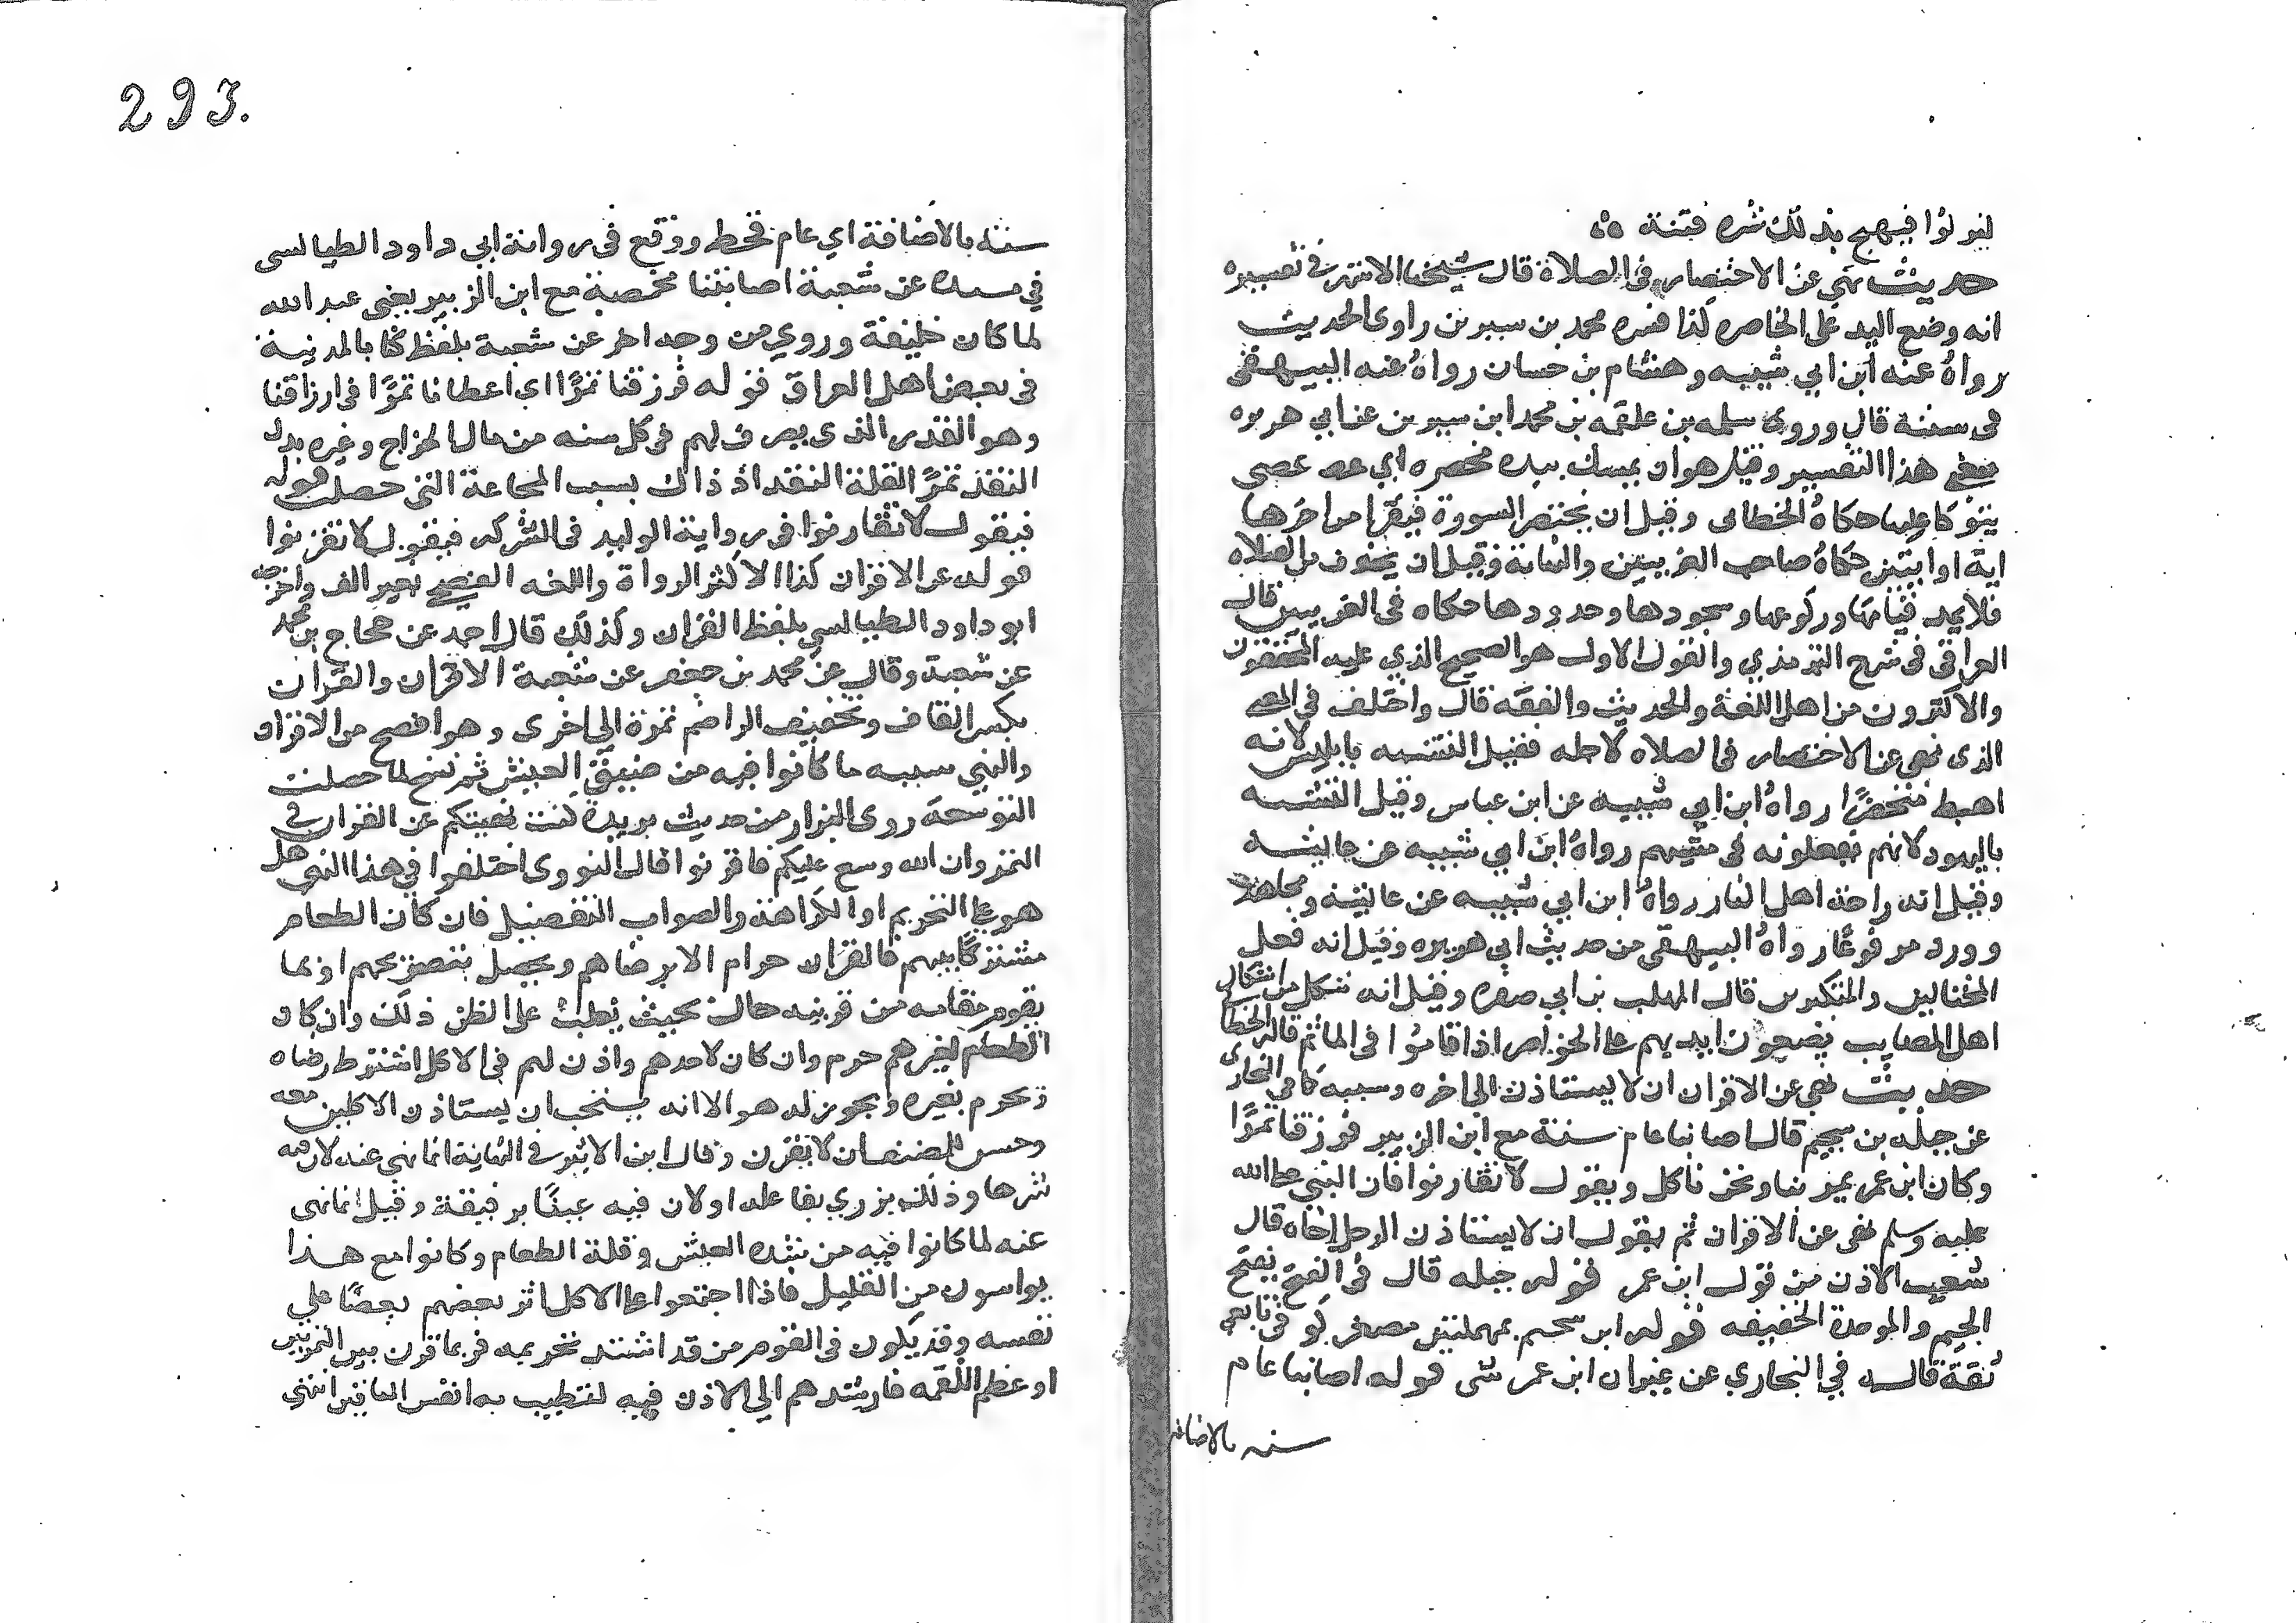 293.
لتبولوا فيهيج بذلك شره فتنة
حديث نهي عن الاختصار في الصلاة قال شيخنا الاشهر في تفسيره
انه وضع اليد على الخاصره كذا فسره محمد بن سيرين راوى الحديث
رواه عنه ابن ابي شيبه وهشام بن حسان رواه عنه البيهقى
فى سننه قال وروى سلمه بن علقمه بن محمد ابن سيرين عن ابي هريره
هذا التفسير وقيل هو ان يمسك بيده مخصره اي عصى
يتوكا عليها حكاه الخطابى وقيل ان يختصر السورة فيقرا من اخرها
اية او ايتين حكاه صاحب الغريبين والنهاية وقيل ان يحذف من الصلاه
فلا يمد قيامها وركوعها وسجودها وحدودها حكاه فى الغريبين قال
العراقى فى شرح الترمذي والقول الاول هو الصحيح الذي عليه المحققون
والاكثرون من اهل اللغة والحديث والفقه قال واختلف فى المعنى
الذى نهى عن الاختصار فى الصلاه لاجله فقيل التشبه بابليس لانه
اهبط مختصرًا رواه ابن ابي شيبه عن ابن عباس وقيل التشبه
باليهود لانهم يفعلونه فى رواه ابن ابي شيبه عن عايشه
وقيل انه راحة اهل النار رواه ابن ابي شيبه عن عايشه ومجاهد
وورد مرفوعًا رواه البيهقى من حديث ابي هريره وقيل انه فعل
المختالين والمتكبرين قال المهلب بن ابي صفره وقيل انه شكل من اشكال
اهل المصايب يضعون ايديهم على الخواصر اذا قاموا فى الماتم قاله الخطابى
حديث نهى عن الاقران الا ان يستاذن الى اخره وسببه كما فى البخارى
عن جبلة بن سحيم قال اصابنا عام سنة مع ابن الزبير فرزقنا تمرًا
وكان ابن عمر يمر بنا ونحن ناكل ويقول لا تقارنوا فان النبي صلى الله
عليه وسلم نهى عن الاقران ثم يقول الا ان يستاذن الرجل اخاه قال
شعبه الاذن من قول ابن عمر قوله جبله قال فى الفتح بفتح
الجيم والموحدة الخفيفه قوله ابن سحيم بمهملتين مصغر كوفى تابعى
ثقة قاله في البخاري عن غير ابن عمر شى قوله اصابنا عام
سنه بالاضافه
سنه بالاضافة اي عام قحط ووقع فى رواية ابي داود الطيالسى
في مسنده عن شعبة اصابتنا مخمصة مع ابن الزبير يعنى عبد الله
لما كان خليفة وروي من وجه اخر عن شعبة بلفظ كنا بالمدينة
فى بعض اهل العراق قوله فرزقنا تمرًا اى اعطانا تمرًا فى ارزاقنا
وهو القدر الذى يصرف لهم فى كل سنه من مال الخراج وغيره بدل
النقد تمرًا لقلة النقد اذ ذاك بسبب المجاعة التى حصلت قوله
فيقول لا تقارنوا فى رواية الوليد فى الشركه فيقول لا تقرنوا
قوله عن الاقران كذا لاكثر الرواة واللغه الفصحى بغير الف واخرجه
ابو داود الطيالسى بلفظ القران وكذلك قال احمد عن حجاج بن محمد
عن شعبة وقال عن محمد بن جعفر عن شعبة الاقران والقران
بكسر القاف وتخفيف الرا ضم تمرة الى اخرى وهو افصح من الاقران
والنهي سببه ما كانوا فيه من ضيق العيش ثم نسخ لما حصلت
التوسعه روى البزار من حديث بريدة كنت نهيتكم عن القران في
التمر وان الله وسع عليكم فاقرنوا قال النووى اختلفوا في هذا النهي هل
هو على التحريم او الكراهة والصواب التفصيل فان كان الطعام
مشتركًا بينهم فالقران حرام الا برضاهم ويحصل بتصريحهم او بما
يقوم مقامه من قرينه حال بحيث يغلب على الظن ذلك وان كان
الطعام لغيرهم حرم وان كان لاحدهم واذن لهم فى الاكل اشترط رضاه
ويحرم بغيره ويجوز له هو الا انه يستحب ان يستاذن الاكلين معه
وحسن للمضيف ان لا يقرن وقال ابن الاثير في النهاية انما نهي عنه لان فيه
شرها وذلك يزري بفاعله او لان فيه غبنًا برفيقه وقيل انما نهى
عنه لما كانوا فيه من شدة العيش وقلة الطعام وكانوا مع هذا
يواسون من القليل فاذا اجتمعوا على الاكل اثر بعضهم بعضًا علي
نفسه وقد يكون فى القوم من قد اشتد فربما قرن بين التمرتين
او عظم اللقمه فارشدهم الى الاذن فيه لتطيب به انفس الباقين انتهى